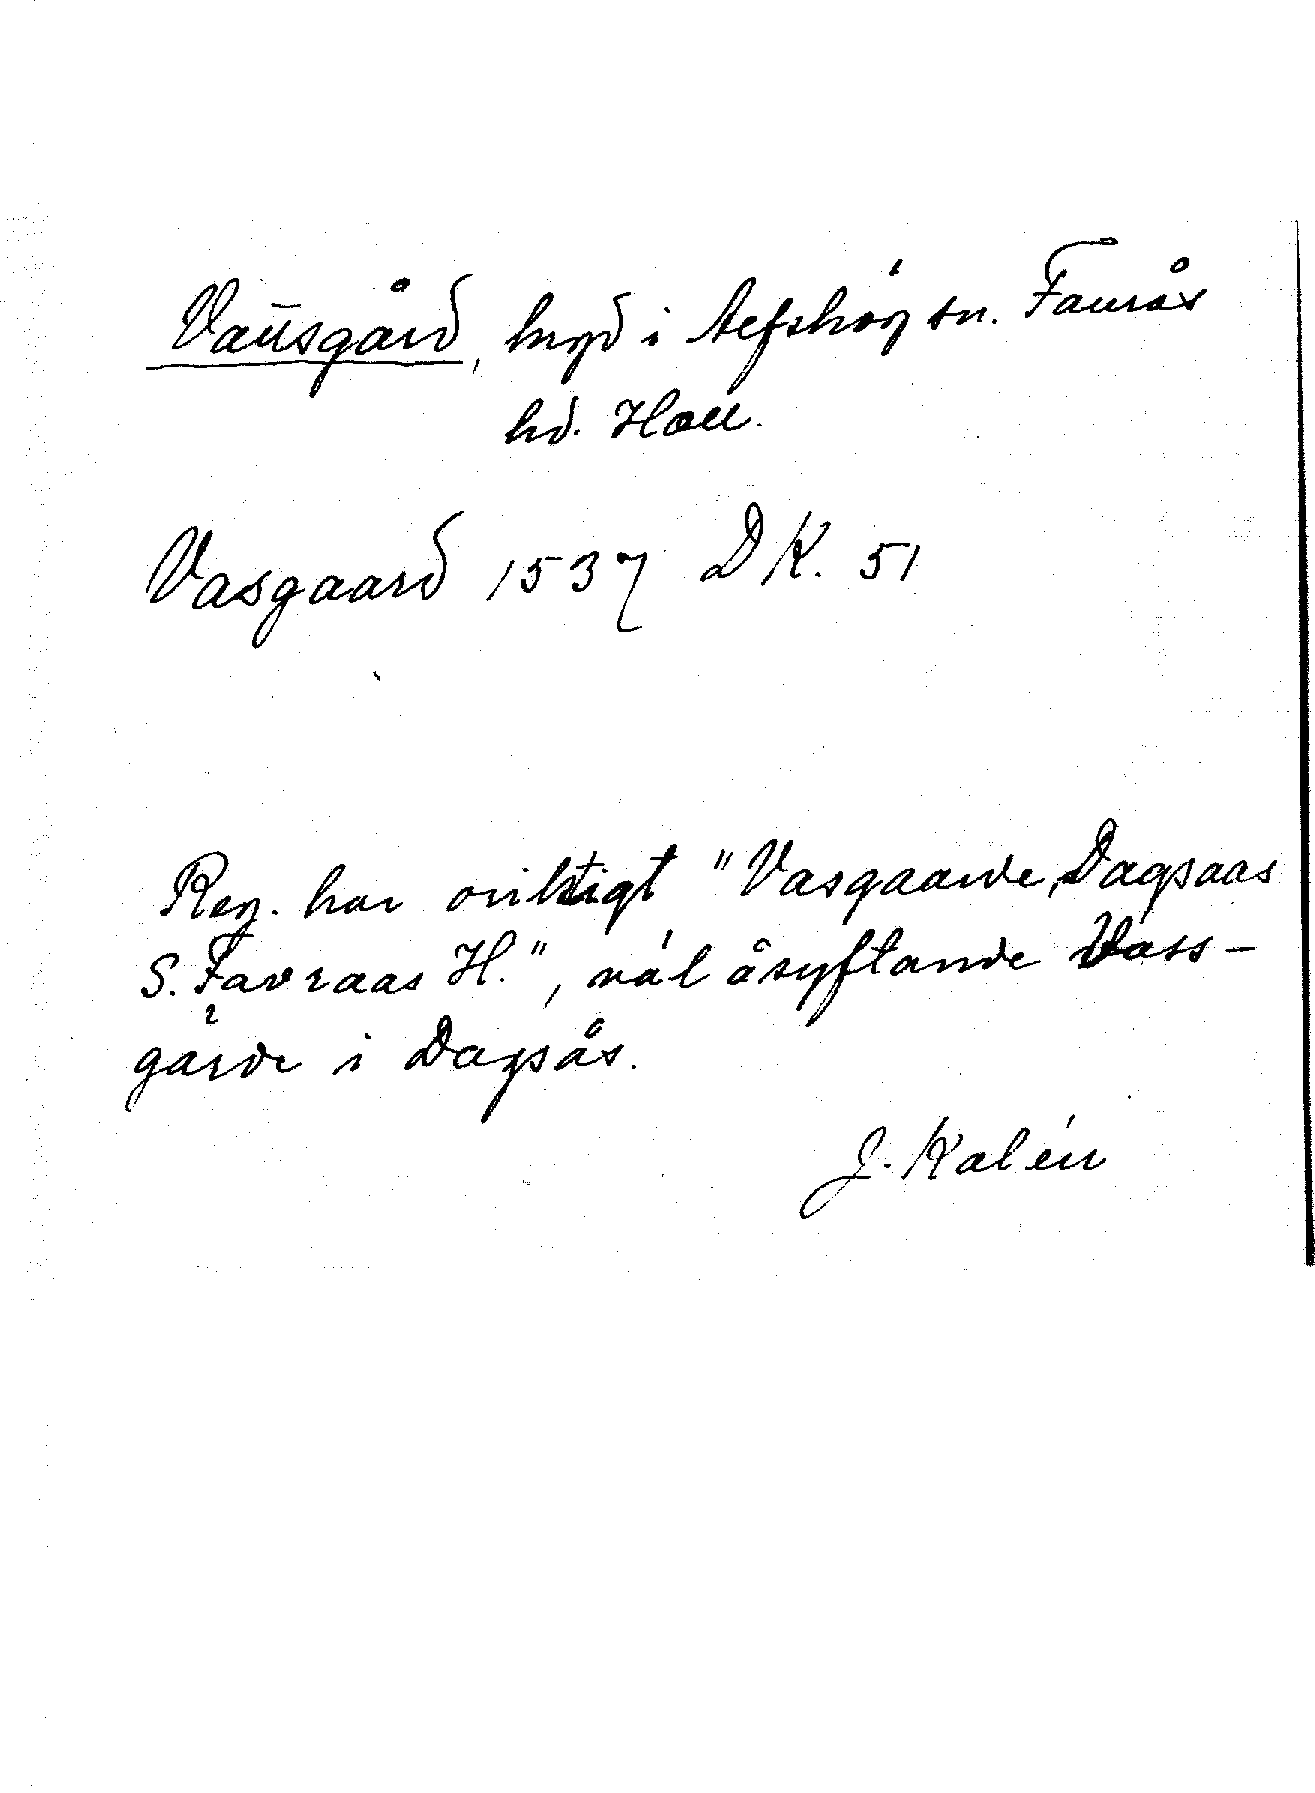 Vausgård, bryd i Aefshög sn. Faurås
hd. Hall.
Vasgaard 1537 DK. 51
Reg. har oriktigt "Vasgaarde, Dagsaas
S. Favraas H.", väl åsyftande Vass-
gärde i Dagsås.
J. Kalén